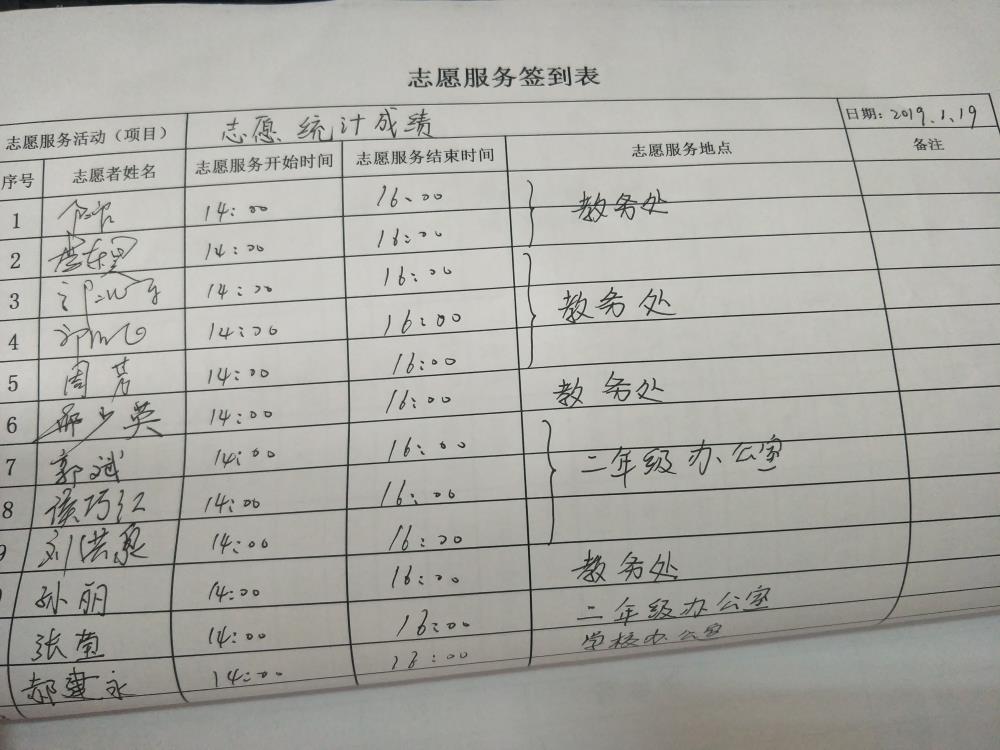 志愿服务签到表
志愿服务活动（项目） 志愿统计成绩 日期: 2019.1.19
序号 志愿者姓名 志愿服务开始时间 志愿服务结束时间 志愿服务地点 备注
1 14:00 16:00 教务处
2 14:00 16:00
3 14:00 16:00 教务处
4 14:00 16:00
5 周芳 14:00 16:00
6 邢少英 14:00 16:00 教务处
7 郭斌 14:00 16:00 二年级办公室
8 侯巧红 14:00 16:00
9 刘洪 14:00 16:00
孙丽 14:00 16:00 教务处
张莹 14:00 16:00 二年级办公室
郝建永 14:00 16:00 学校办公室